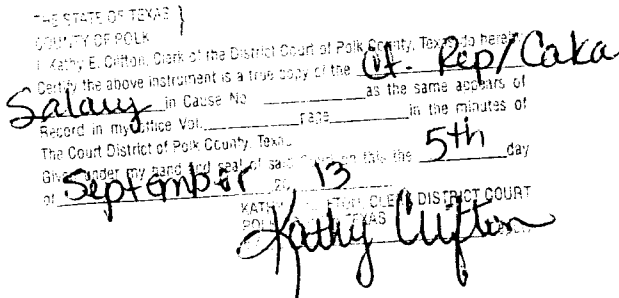 THE STATE OF TEXAS }
COUNTY OF POLK
I, Kathy E. Clifton, Clerk of the District Court of Polk County, Texas do hereby
Certify the above instrument is a true copy of the Ct. Rep/
Salary in Cause No. ____________ as the same appears of
Record in my office Vol. ____________ page ____________ in the minutes of
The Court District of Polk County, Texas.
Given under my hand and seal of said Court on this the 5th day
of September 20 13
KATHY CLERK DISTRICT COURT
POLK TEXAS
Kathy Clifton